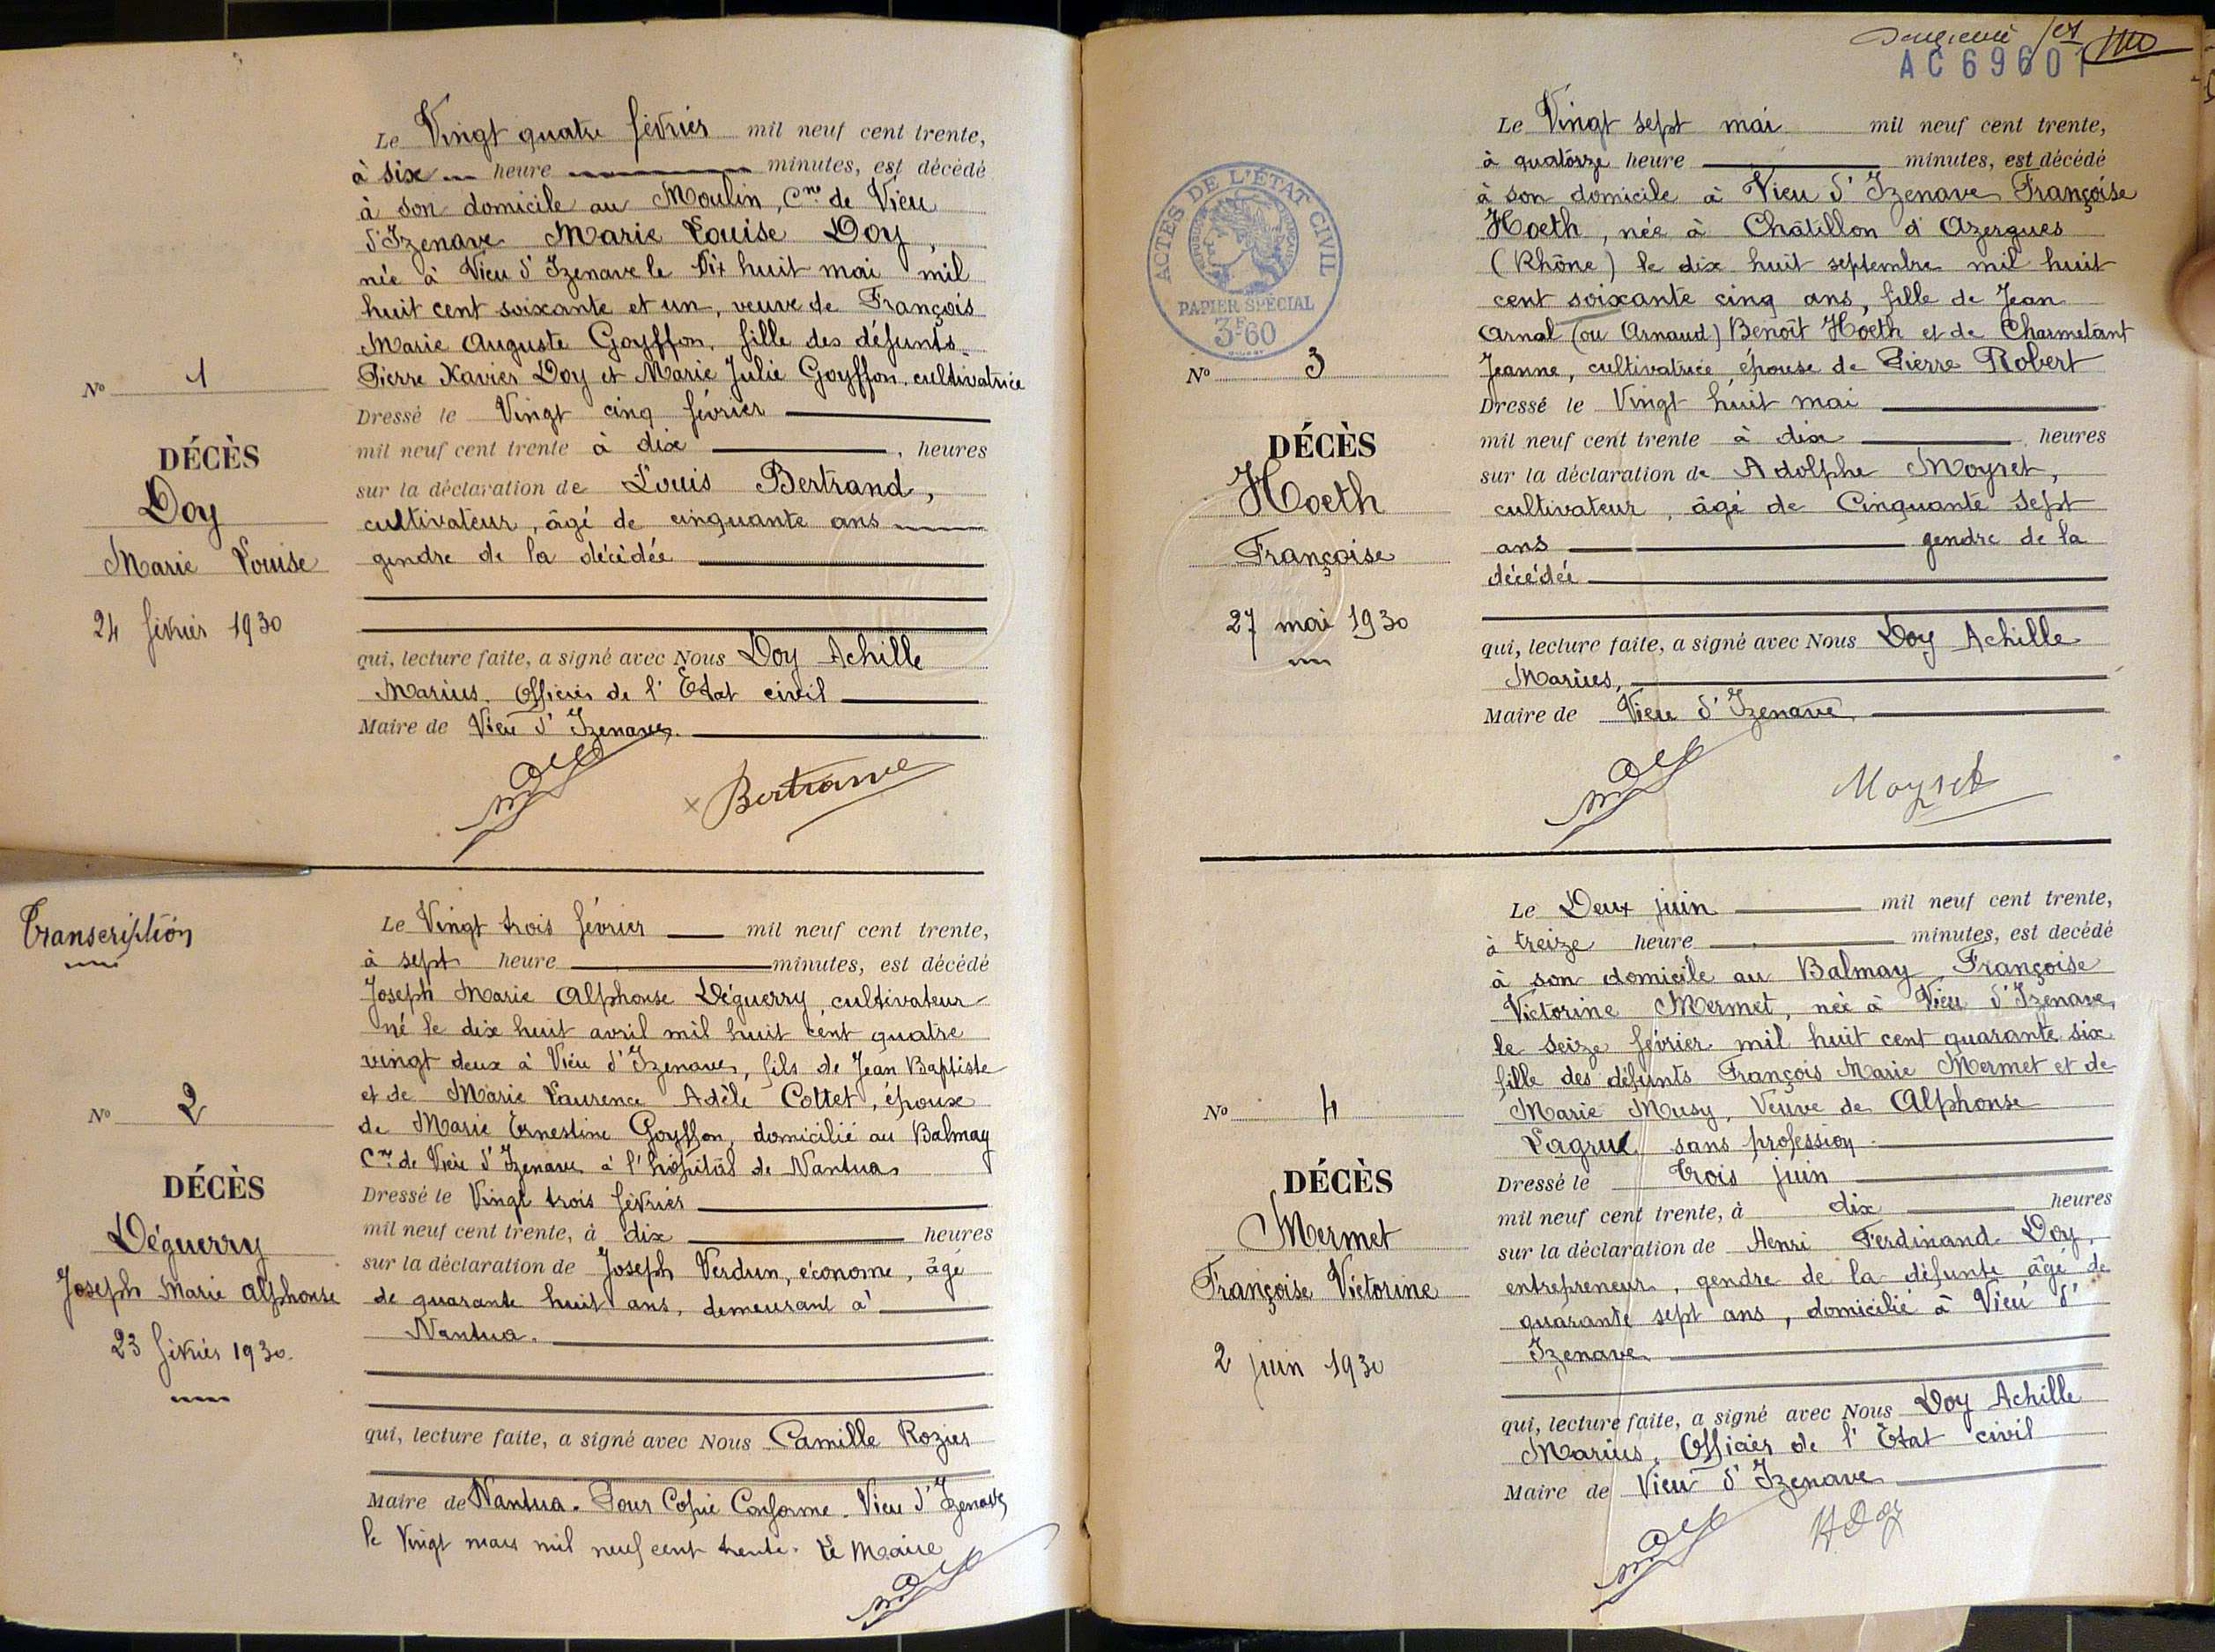 Le Vingt quatre février mil neuf cent trente,
à six heure minutes, est décédé
à son domicile au Moulin, Cne de Vieu
d'Izenave Marie Louise Doy,
née à Vieu d'Izenave le Dix huit mai mil
huit cent soixante et un, veuve de François
Marie Auguste Goyffon, fille des défunts
Pierre Xavier Doy et Marie Julie Goyffon. cultivatrice
Dressé le Vingt cinq février
mil neuf cent trente à dix, heures
sur la déclaration de Louis Bertrand,
cultivateur, âgé de cinquante ans
gendre de la décédée
qui, lecture faite, a signé avec Nous Doy Achille
Marius, Officier de l'Etat civil
Maire de Vieu d'Izenave.
Bertrand
No 1
DÉCÈS
Doy
Marie Louise
24 février 1930
Transcription
Le Vingt trois février mil neuf cent trente,
à sept heure minutes, est décédé
Joseph Marie Alphonse Déguerry, cultivateur
né le dix huit avril mil huit cent quatre
vingt deux à Vieu d'Izenave, fils de Jean Baptiste
et de Marie Laurence Adèle Cottet, époux
de Marie Ernestine Goyffon, domicilié au Balmay
Cne de Vieu d'Izenave à l'hôpital de Nantua
Dressé le Vingt trois février
mil neuf cent trente, à dix heures
sur la déclaration de Joseph Verdun, économe, âgé
de quarante huit ans, demeurant à
Nantua.
qui, lecture faite, a signé avec Nous Camille Rozier
Maire de Nantua. Pour Copie Conforme. Vieu d'Izenave
le Vingt mars mil neuf cent trente. Le Maire
No 2
DÉCÈS
Déguerry
Joseph Marie Alphonse
23 février 1930.
AC 69601
ACTES DE L'ÉTAT CIVIL
PAPIER SPÉCIAL
3F60
Le Vingt sept mai mil neuf cent trente,
à quatorze heure minutes, est décédé
à son domicile à Vieu d'Izenave Françoise
Hoeth, née à Châtillon d'Azergues
(Rhône) le dix huit septembre mil huit
cent soixante cinq ans, fille de Jean
Arnal (ou Arnaud) Benoît Hoeth et de Charmetant
Jeanne, cultivatrice, épouse de Pierre Robert
Dressé le Vingt huit mai
mil neuf cent trente à dix, heures
sur la déclaration de Adolphe Moyret,
cultivateur, âgé de Cinquante sept
ans gendre de la
décédée
qui, lecture faite, a signé avec Nous Doy Achille
Marius,
Maire de Vieu d'Izenave
Moyret
No 3
DÉCÈS
Hoeth
Françoise
27 mai 1930
Le Deux juin mil neuf cent trente,
à treize heure minutes, est decédé
à son domicile au Balmay Françoise
Victorine Mermet, née à Vieu d'Izenave,
le seize février mil huit cent quarante six
fille des défunts François Marie Mermet et de
Marie Musy, Veuve de Alphonse
Lagrue sans profession
Dressé le Trois juin
mil neuf cent trente, à dix heures
sur la déclaration de Henri Ferdinand Doy,
entrepreneur, gendre de la défunte âgé de
quarante sept ans, domicilié à Vieu d'
Izenave
qui, lecture faite, a signé avec Nous Doy Achille
Marius, Officier de l'Etat civil
Maire de Vieu d'Izenave
H Doy
No 4
DÉCÈS
Mermet
Françoise Victorine
2 juin 1930